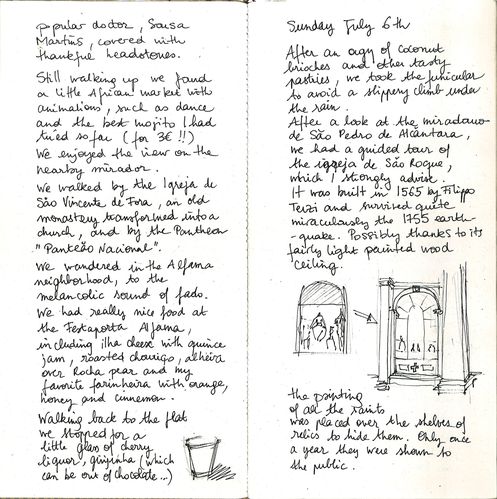 popular doctor, Sousa
Martins, covered with
thankful headstones.
Still walking up we found
a little African market with
animations, such as dance
and the best mojito I had
tried so far (for 3€ !!)
We enjoyed the view on the
nearby mirador.
We walked by the Igreja de
São Vincente de Fora, an old
monastery transformed into a
church, and by the Pantheon
"Panteão Nacional".
We wandered in the Alfama
neighborhood, to the
melancolic sound of fado.
We had really nice food at
the Festaporta Alfama,
including ilha cheese with quince
jam, roasted chouriço, alheira
over Rocha pear and my
favorite farinheira with orange,
honey and cinnemon.
Walking back to the flat
we stopped for a
little glass of cherry
liquor, ginjinha (which
can be out of chocolate...)
Sunday July 6th
After an orgy of coconut
brioches and other tasty
pastries, we took the funicular
to avoid a slippery climb under
the rain.
After a look at the miradouro
de São Pedro de Alcântara,
we had a guided tour of
the igreja de São Roque,
which I strongly advise.
It was built in 1565 by Filippo
Terzi and survived quite
miraculously the 1755 earth-
-quake. Possibly thanks to its
fairly light painted wood
ceiling.
the painting
of all the saints
was placed over the shelves of
relics to hide them. Only once
a year they were shown to
the public.